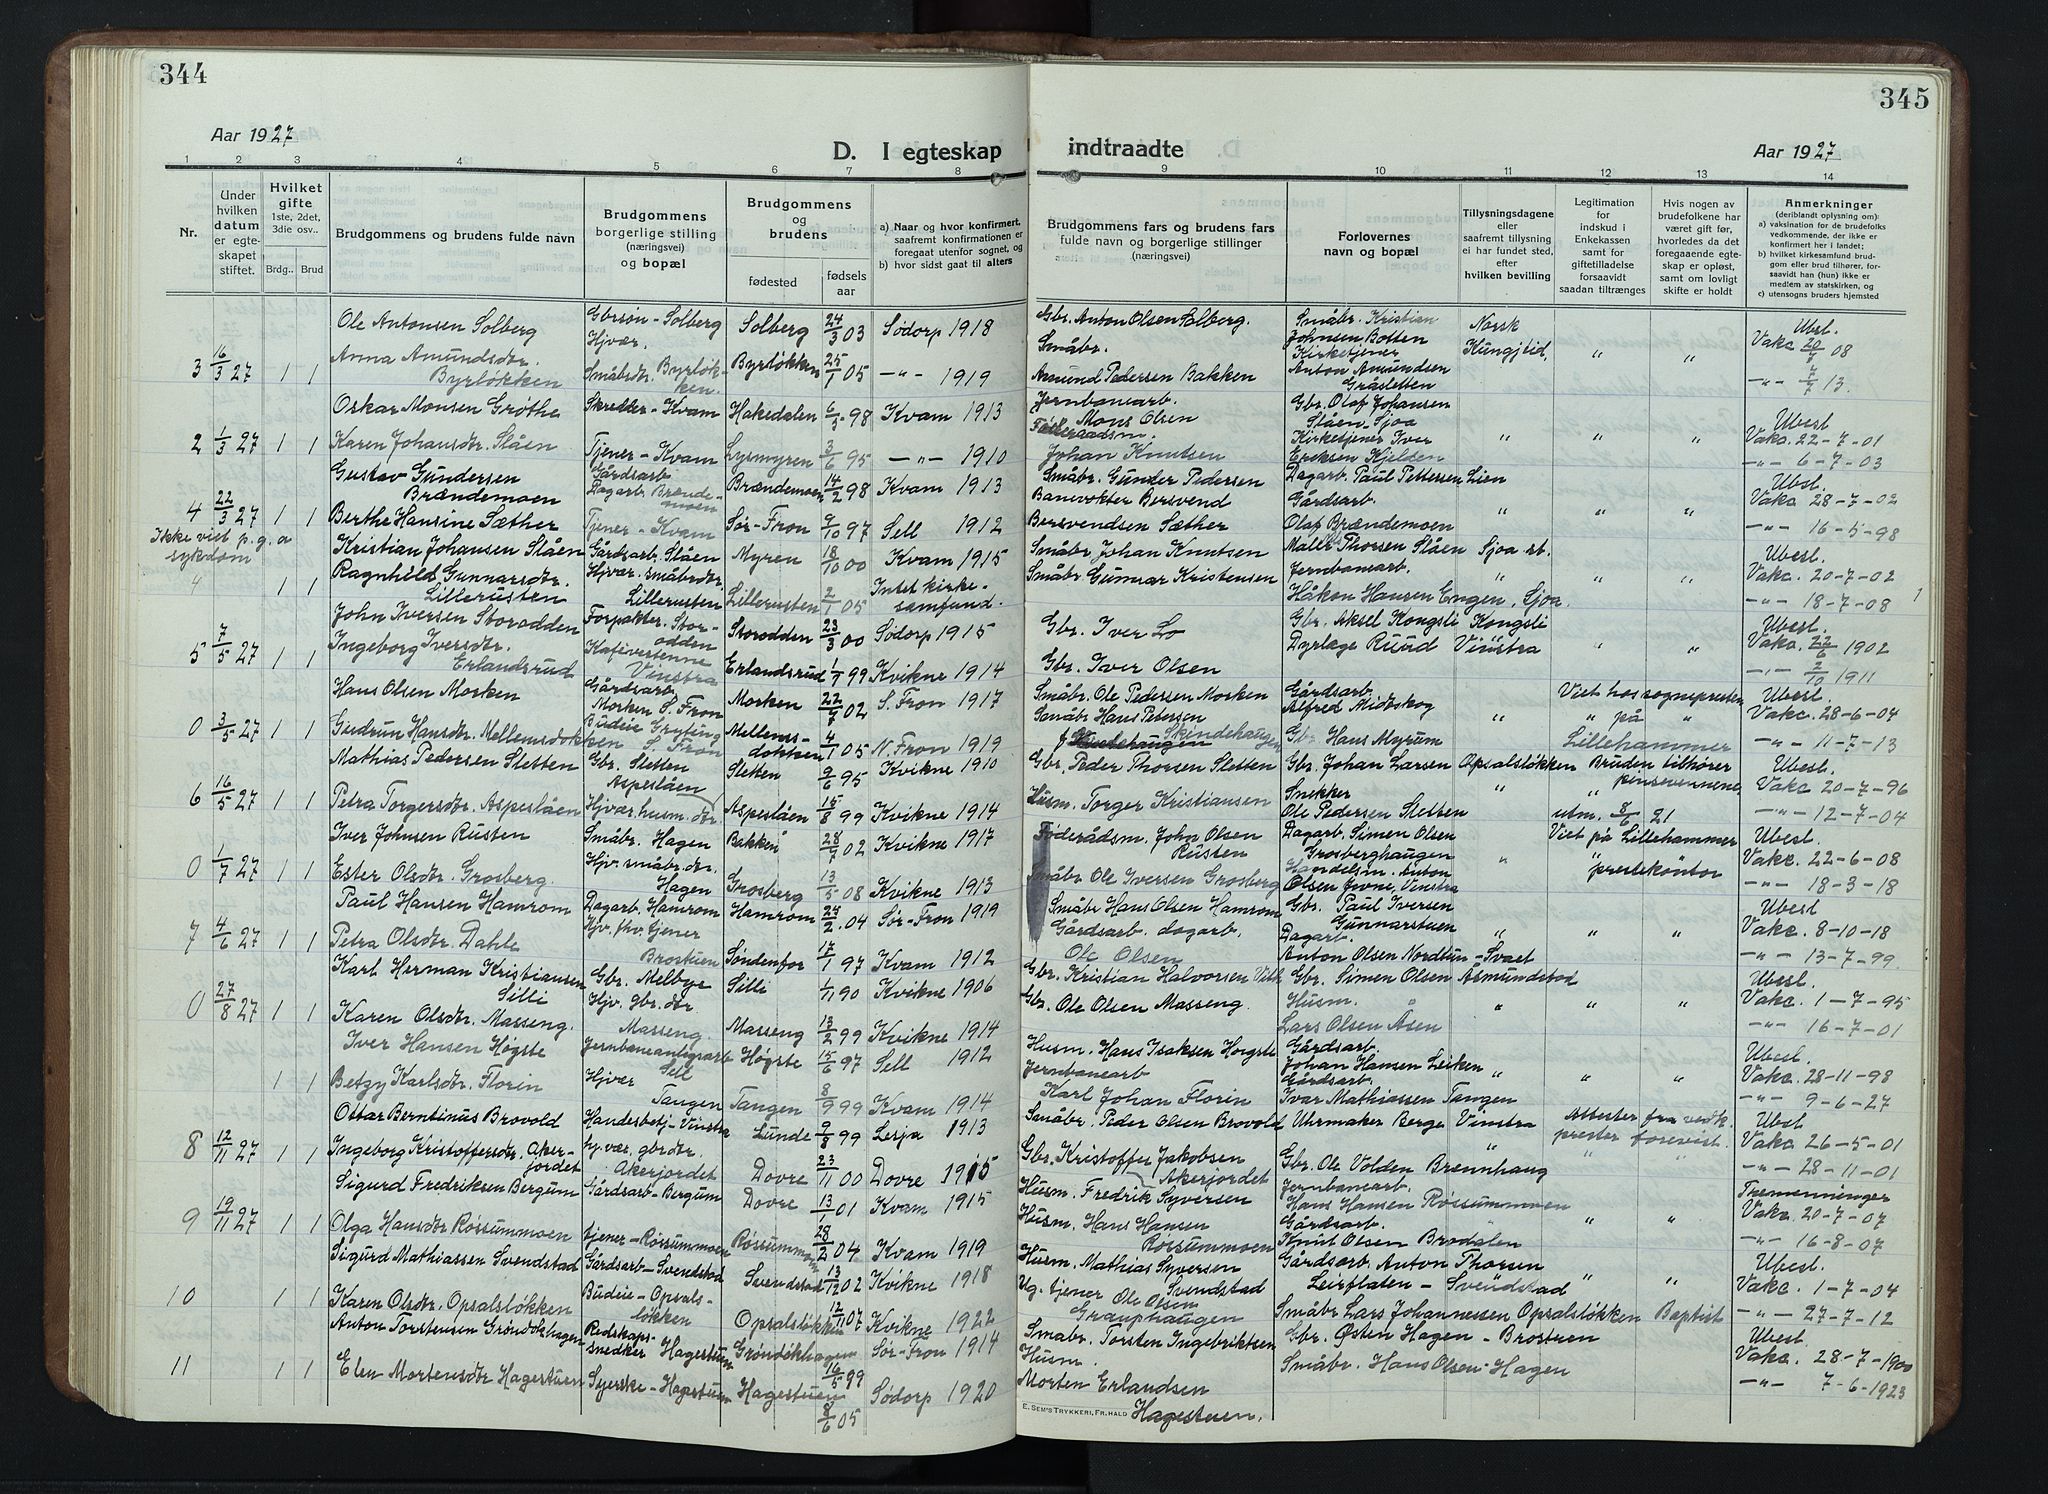 344
Aar 1927
D. I egteskap
1 2 3 4 5 6 7 8
Nr.
Under hvilken datum er egteskapet stiftet.
Hvilket gifte 1ste, 2det, 3die osv..
Brdg.. Brud
Brudgommens og brudens fulde navn
Brudgommens borgerlige stilling (næringsvei) og bopæl
Brudgommens og brudens
fødested
fødsels aar
a) Naar og hvor konfirmert, saafremt konfirmationen er foregaat utenfor sognet, og
b) hvor sidst gaat til alters
Ole Antonsen Solberg Gbrsøn - Solberg Solberg 24/3 03 Sødorp 1918
3 16/3 27 1 1 Anna Amundsdtr. Byrløkken Hjvær. Småbrdtr. Byrløkken. Byrløkken 25/1 05 -"- 1919
Oskar Monsen Grøthe Skredder - Kvam Hakedalen 6/5 98 Kvam 1913
2 1/3 27 1 1 Karen Johansdtr. Slåen Tjener - Kvam Lysmyren 3/6 95 -"- 1910
Gustav Gundersen Brændemoen Gårdsarb. Dagarb. Brændemoen Brændemoen 14/2 98 Kvam 1913
4 22/3 27 1 1 Berthe Hansine Sæther Tjener - Kvam Sør-Fron 9/10 97 Sell 1912
Ikke viet p.g.a sykdom
Kristian Johansen Slåen Gårdsarb. Slåen Myren 18/10 00 Kvam 1915
4 1 1 Ragnhild Gunnarsdtr. Lillerusten Hjvær. småbrdtr. Lillerusten Lillerusten 2/1 05 Intet kirkesamfund.
John Iversen Storodden Forpakter. Storodden Storodden 23/3 00 Sødorp 1915
5 7/5 27 1 1 Ingeborg Iversdtr. Erlandsrud Kafivertinne Vinstra Erlandsrud 1/7 99 Kvikne 1914
Hans Olsen Morken Gårdsarb. Morken S. Fron Morken 22/7 02 S. Fron 1917
0 3/5 27 1 1 Gudrun Hansdtr. Mellemsdokken Budeie Gryting S. Fron Mellemsdokken 4/1 05 N. Fron 1919
Mathias Pedersen Sletten Gbr. Sletten Sletten 9/6 95 Kvikne 1910
6 16/5 27 1 1 Petra Torgersdtr. Aspeslåen Hjvær. husm. dtr. Aspeslåen Aspeslåen 15/8 99 Kvikne 1914
Iver Johnsen Rusten Småbr. Hagen Bakken 28/7 02 Kvikne 1917
0 1/7 27 1 1 Ester Olsdtr. Grosberg. Hjv. småbr. dtr. Hagen Grosberg 13/5 08 Kvikne 1913
Paul Hansen Hamrom Dagarb. Hamrom Hamrom 24/2. 04 Sør-Fron 1919
7 4/6 27 1 1 Petra Olsdtr. Dahle Hjv. fhv. tjener Brostuen Søndenfor 17/1 97 Kvam 1912
Karl Herman Kristiansen Silli Gbr. Melbye Silli 1/11 90 Kvikne 1906
0 27/8 27 1 1 Karen Olsdtr. Masseng. Hjv. gbr. dtr. Masseng. Masseng 13/2 99 Kvikne 1914
Iver Hansen Høgste Jernbaneanlegsarb Sell Høgste 15/6 97 Sell 1912
1 1 Betzy Karlsdtr. Florin Hjvær Tangen Tangen 8/9 99 Kvam 1914
Ottar Berntinus Brovold Handesbetj - Vinstra Lunde 9/8 99 Lesja 1913
8 12/11 27 1 1 Ingeborg Kristoffersdtr. Akerjordet hjvær. gbrdtr. Akerjordet Dovre 23/11 00 Dovre 1915
Sigurd Fredriksen Bergum Gårdsarb - Bergum Dovre 13/1 01 Kvam 1915
9 19/11 27 1 1 Olga Hansdtr Røssummoen tjener - Røssummoen Røssummoen 28/2 04 Kvam 1919
Sigurd Mathiassen Svendstad Gårdsarb - Svendstad Svendstad 13/12 02 Kvikne 1918
10 1 1 Karen Olsdtr. Opsalsløkken Budeie - Opsalsløkken Opsalsløkken 12/11 07 Kvikne 1922
Anton Torstensen Grøndokhagen Redskapssnedker Hagestuen Grøndokhagen 16/5 99 Sør-Fron 1914
11 1 1 Elen Mortensdtr Hagestuen Syerske - Hagestuen Hagestuen 8/6 05 Sødorp 1920
345
Aar 1927
indtraadte
9 10 11 12 13 14
Brudgommens fars og brudens fars fulde navn og borgerlige stillinger (næringsvei)
Forlovernes navn og bopæl
Tillysningsdagene eller saafremt tillysning ei har fundet sted, efter hvilken bevilling
Legitimation for indskud i Enkekassen samt for giftetilladelse forsaavidt saadan tiltrænges
Hvis nogen av brudefolkene har været gift før, hvorledes da det foregaaende egteskap er opløst, samt om lovligt skifte er holdt
Anmerkninger (deriblandt oplysning om):
a) vaksination for de brudefolks vedkommende, der ikke er konfirmert her i landet;
b) hvilket kirkesamfund brudgom eller brud tilhører, forsaavidt han (hun) ikke er medlem av statskirken, og
c) utensogns bruders hjemsted
Gbr. Anton Olsen Solberg. Småbr. Kristian Johnsen Botten Norsk Kungjtid, " " Ubesl. Vakc 20/7 08
Småbr. Amund Pedersen Bakken Kirketjener Anton Amundsen Gråsletten -"- 7/7 13.
Jernbanearb. Mons Olsen Gbr. Olaf Johansen Slåen - Sjoa " " " Ubesl Vakc. 22-7-01
Føderaadsm. Johan Knutsen Kirketjener Iver Eriksen Kjelden -"- 6-7-03
Småbr. Gunder Pedersen Dagarb. Paul Pettersen Lien Ubesl. Vakc. 28-7-02
Banevokter Bersvend Bersvendsen Sæther Gårdsarb. Olaf Brændemoen " " " -"- 16-5-98
Småbr. Johan Knutsen Maler Thorsen Slåen Sjoa st. Ubesl. Vakc. 20-7-02
Småbr. Gunnar Kristensen Jernbanearb. Håkon Hansen Engen, Sjoa. " " " -"- 18-7-08
Gbr. Iver Lo Gbr. Aksel Kongsli Kongsli Ubesl. Vakc. 22/6 1902
Gbr. Iver Olsen Dyrlæge Ruud Vinstra " " -"- 2/10 1911
Småbr. Ole Pedersen Morken Gårdsarb. Alfred Midtskog Viet hos sognepresten på Lillehammer Ubesl. Vakc. 28-6-04
Småbr Hans Petersen Skindehaugen Gbr Hans Myrum " " " -"- 11-7-13
Gbr. Peder Thorsen Sletten Gbr. Johan Larsen Opsalsløkken Bruden tilhører pinsevennene, Ubesl. Vakc 20-7-96
Husm. Torger Kristiansen Snekker Ole Pedersen Sletten " " utm. 8/6 21 -"- 12-7-04
Føderådsm. John Olsen Rusten Dagarb. Simen Olsen Grosberghaugen Viet på Lillehammer prestekontor Ubesl. Vakc. 22-6-08
Småbr Ole Iversen Grosberg Handelsm. Anton Olsen Jevne, Vinstra " " -"- 18-3-18
Småbr Hans Olsen Hamrom Gbr. Paul Iversen Gunnarstuen Ubesl Vakc. 8-10-18
Gårdsarb. dagarb. Ole Olsen Dagarb. Anton Olsen Nordtun - Svaet " " " -"- 13-7-99.
Gbr. Kristian Halvorsen Gbr. Simen Olsen Åsmundstad Ubesl. Vakc. 1-7-95
Gbr. Ole Olsen Masseng. Husm. Lars Olsen Åsen " " " -"- 16-7-01
Husm. Hans Isaksen Høgste Gårdsarb. Johan Hansen Leiken Ubesl. Vakc. 28-11-98
Jernbanearb Karl Johan Florin Gårdsarb. Ivar Mathiassen Tangen " " " -"- 9-6-27
Småbr. Peder Olsen Brovold Uhrmaker Berge Vinstra Attester fra vedk. prester forevist. Ubesl Vakc. 26-5-01
Gbr. Kristoffer Jakobsen Akerjordet Gbr. Ole Volden Brennhaug " " " -"- 28-11-01
Husm. Fredrik Syversen Jernbanearb. Hans Hansen Røssummoen Tremenninger Vakc. 20-7-07
Husm. Hans Hansen Røssummoen Gårdsarb. Knut Olsen Brodalen " " -"- 16-8-07
Husm. Mathias Syversen Svendstad Gårdsarb. Anton Thorsen Leirflaten - Svendstad " " Ubesl. Vakc. 1-7-04
Ug. tjener Ole Olsen Grauphaugen Småbr Lars Johannessen Opsalsløkken Baptist -"- 27-7-12
Småbr. Torsten Ingebriktsen Gbr. Østen Hagen - Brostuen Ubesl. Vakc. 28-7-1900
Husm. Morten Erlandsen Hagestuen. Småbr. Hans Olsen - Hagen -"- 7-6-1923
E. SEM'S TRYKKERI, FR.HALD